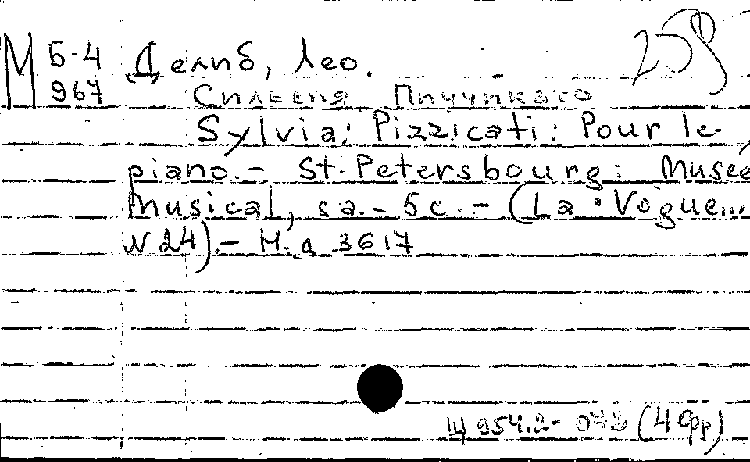 М Б-4 Делиб, Лео. 258
967 Сильвия Пиччикато
Sylvia: Pizzicati: Pour le
piano. - St.-Petersbourg: Musée
musical, s.a. - 5c. - (La Vogue...
N 24). - Н.д. 3617
Щ 954.2- (4 Фр)